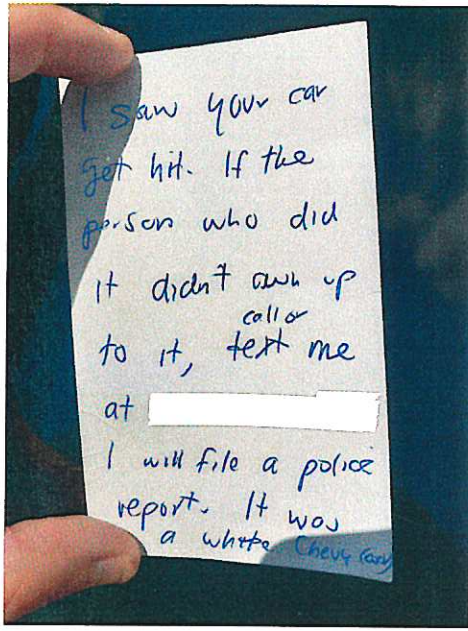 I saw your car
get hit. If the
person who did
it didn't own up
call or
to it, text me
at
I will file a police
report. It was
a white Chevy